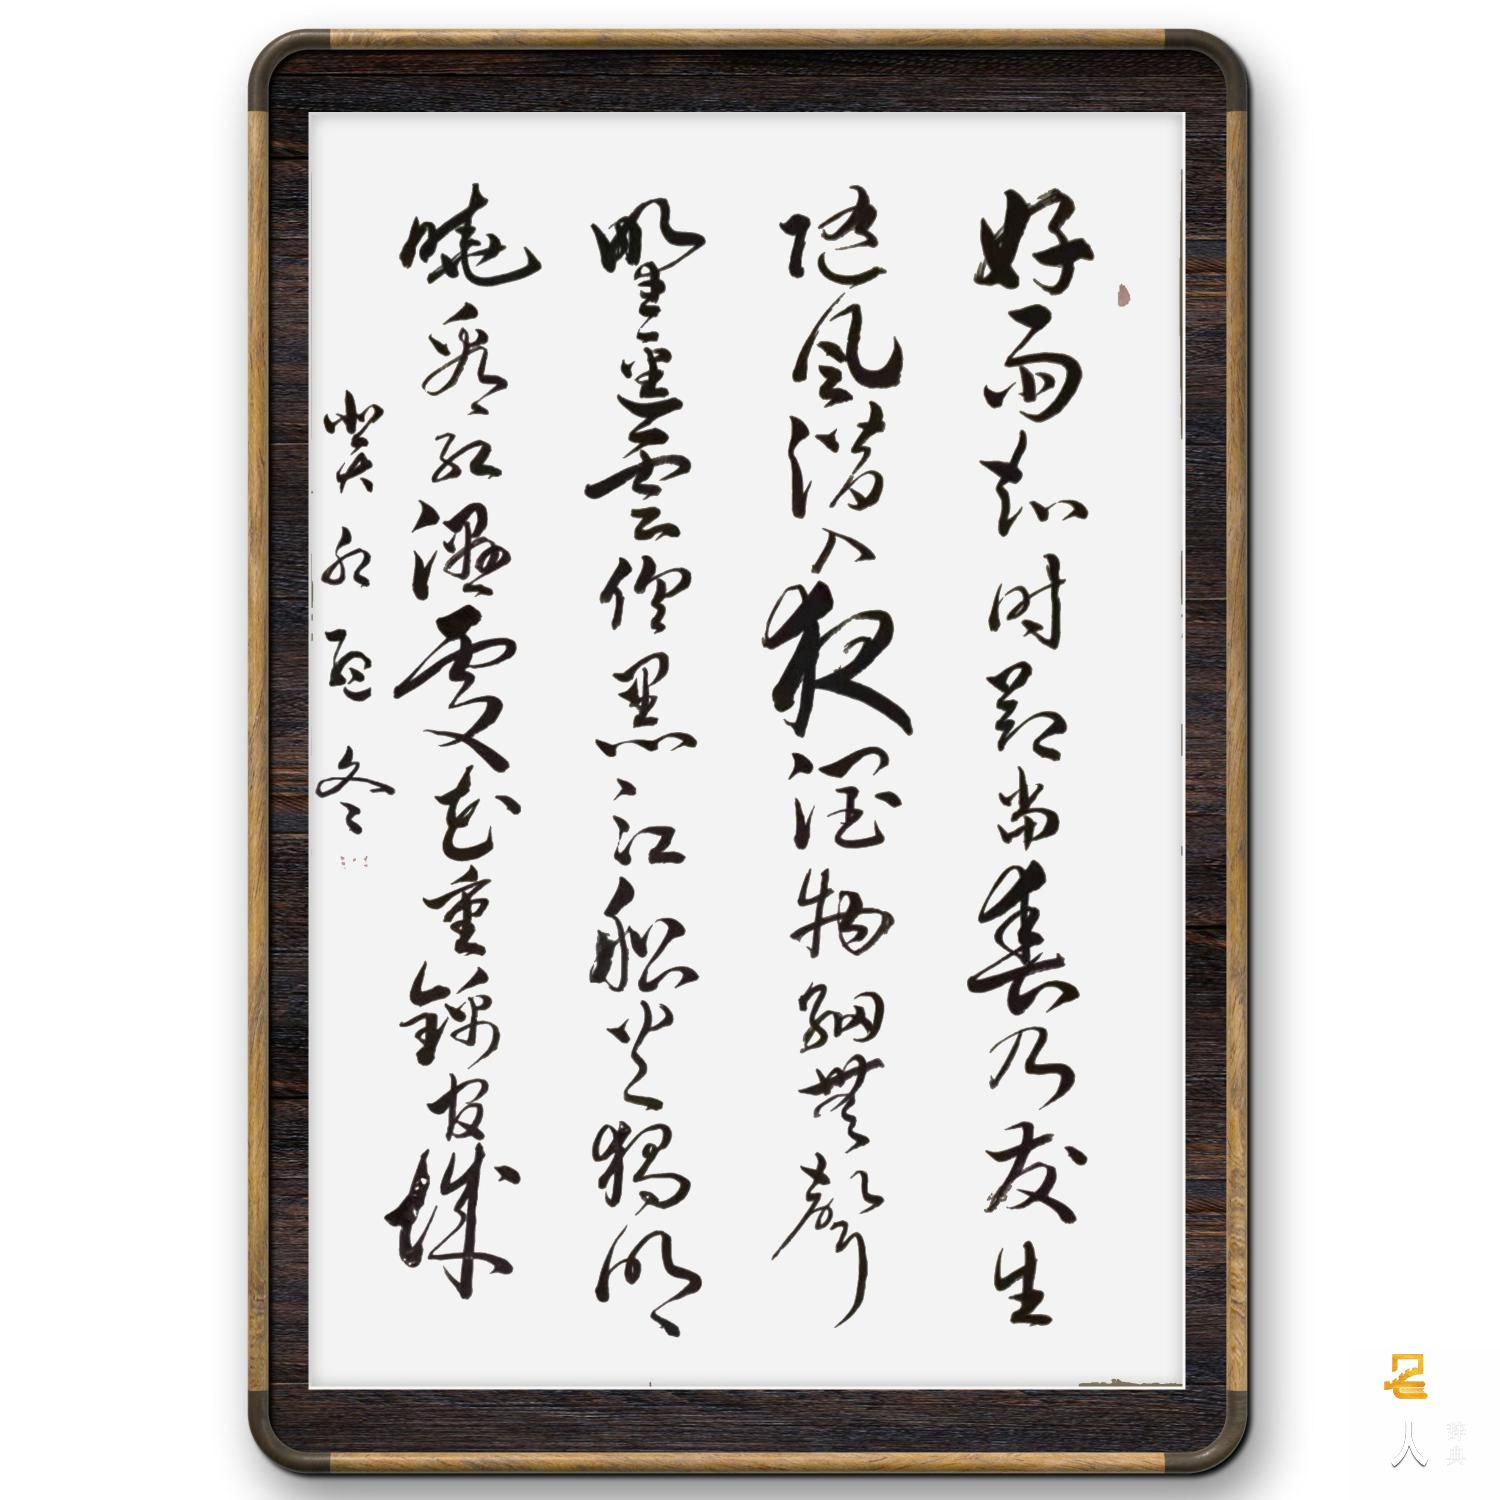 好雨知时节当春乃发生
随风潜入夜润物细無聲
野径雲俱黑江船火独明
晓看红湿處花重锦官城
癸卯 冬
人
辞典